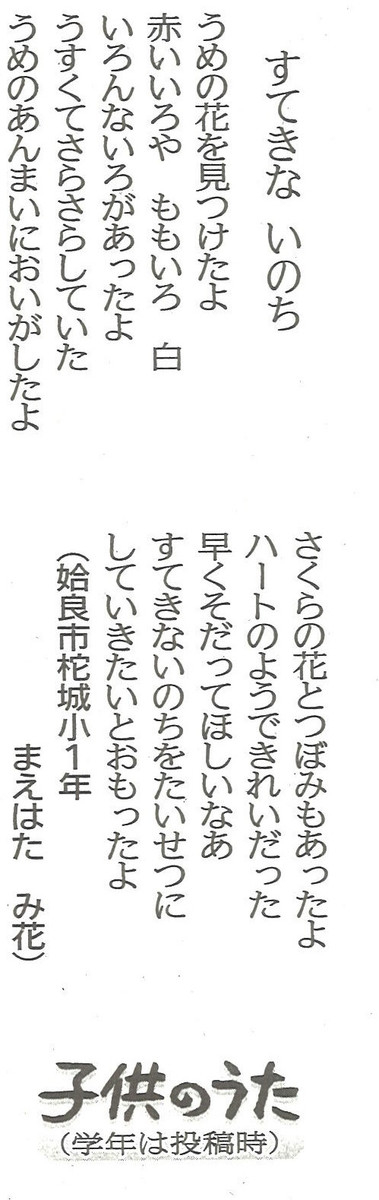 すてきな いのち
うめの花を見つけたよ
赤いいろや ももいろ 白
いろんないろがあったよ
うすくてさらさらしていた
うめのあんまいにおいがしたよ
さくらの花とつぼみもあったよ
ハートのようできれいだった
早くそだってほしいなあ
すてきないのちをたいせつに
していきたいとおもったよ
（姶良市柁城小1年
まえはた み花）
子供のうた
（学年は投稿時）